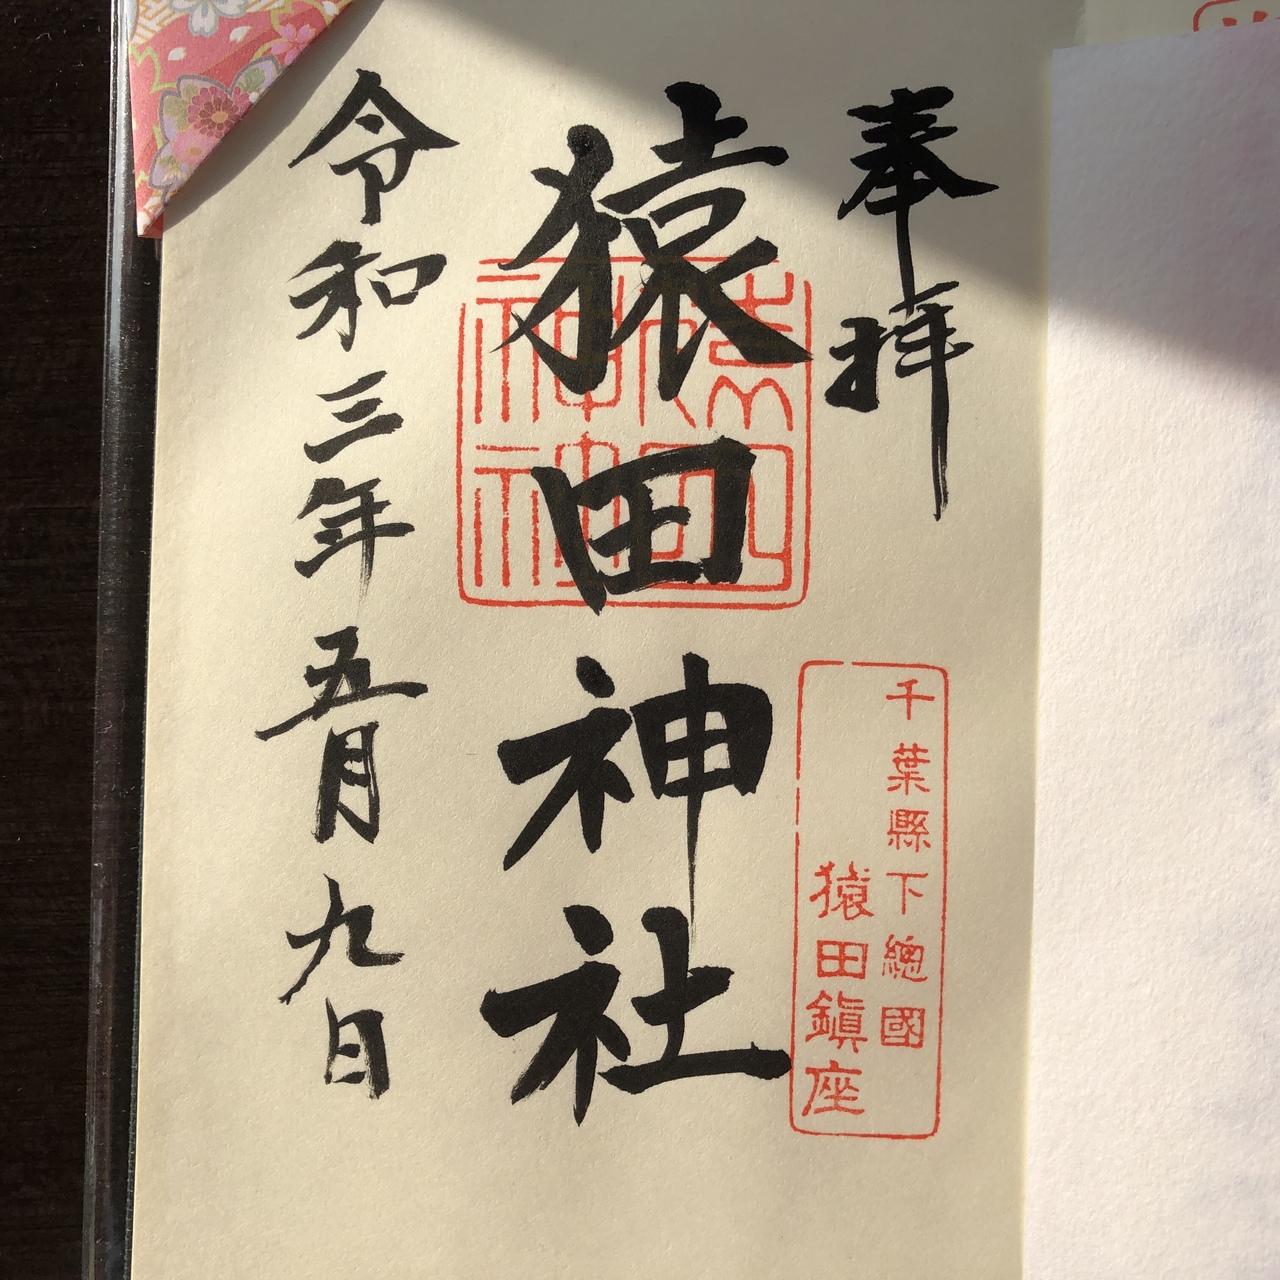 奉拝
猿田神社
猿田神社
千葉縣下總國
猿田鎭座
令和三年五月九日